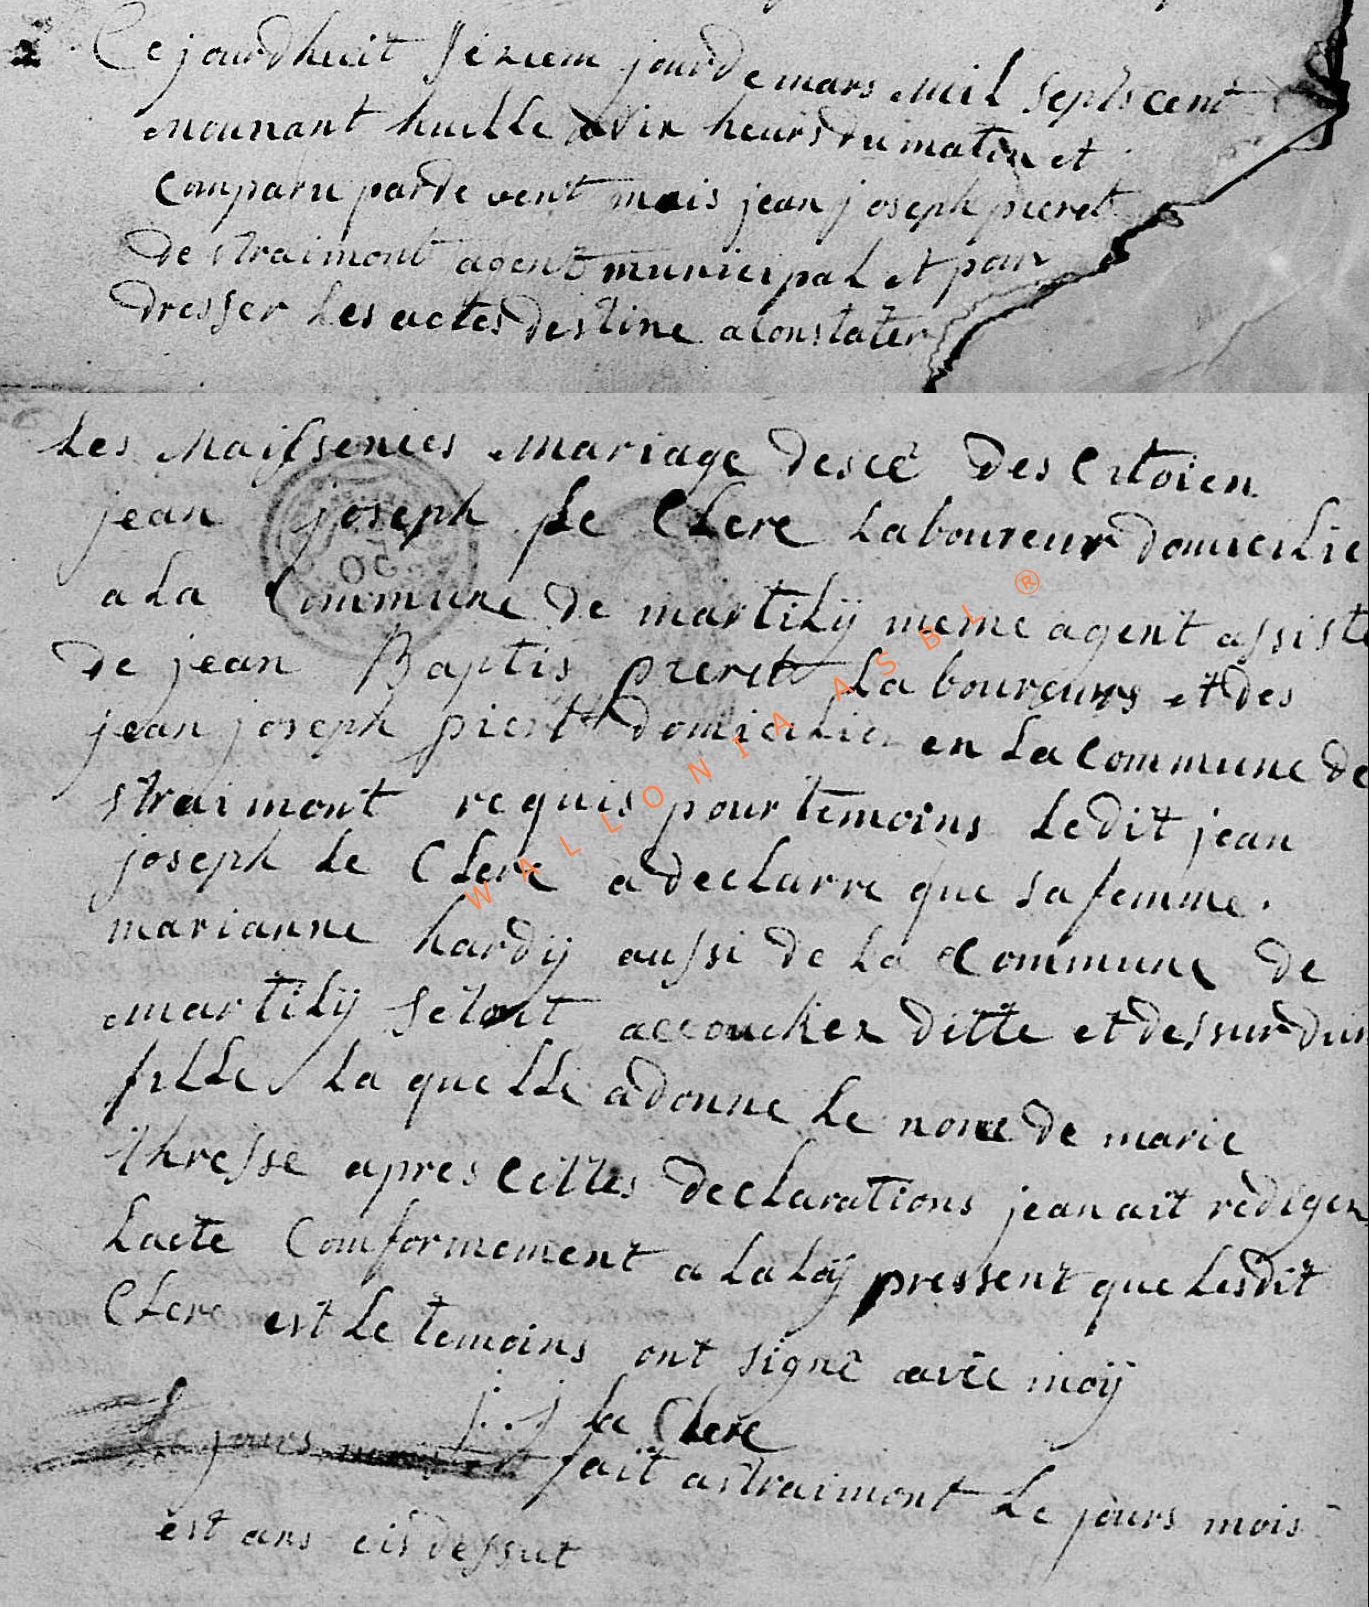 Ce jourdhuit séziem jour de mars mil septs cent
nounant huitte a dix heurs du matin et
comparu par de vent mois jean joseph pieret
de straimont agent municipal et pour
dresser les actes destine a constater
les naissences mariage desce des citoien
jean joseph Le Clere laboureur domicilie
a la Commune de martilÿ meme agent assiste
de jean Baptis pieret laboureurs et des
jean joseph piert domicilie en la commune de
straimont requis pour temoins ledit jean
joseph le Clere a declarre que sa femme
marianne hardÿ aussi de la commune de
martilÿ setoit accouchez ditte et dessur dun
fille la quelle a donne le nome de marie
thresse apres cittes declarations jean ait rèdigez
lacte comformement a la loÿ pressent que lesdit
Clere est le temoins ont signe avec moÿ
j. j le Clere
fait a straimont le jours mois
est ans cis dessut
50
WALLONIA ASBL ®